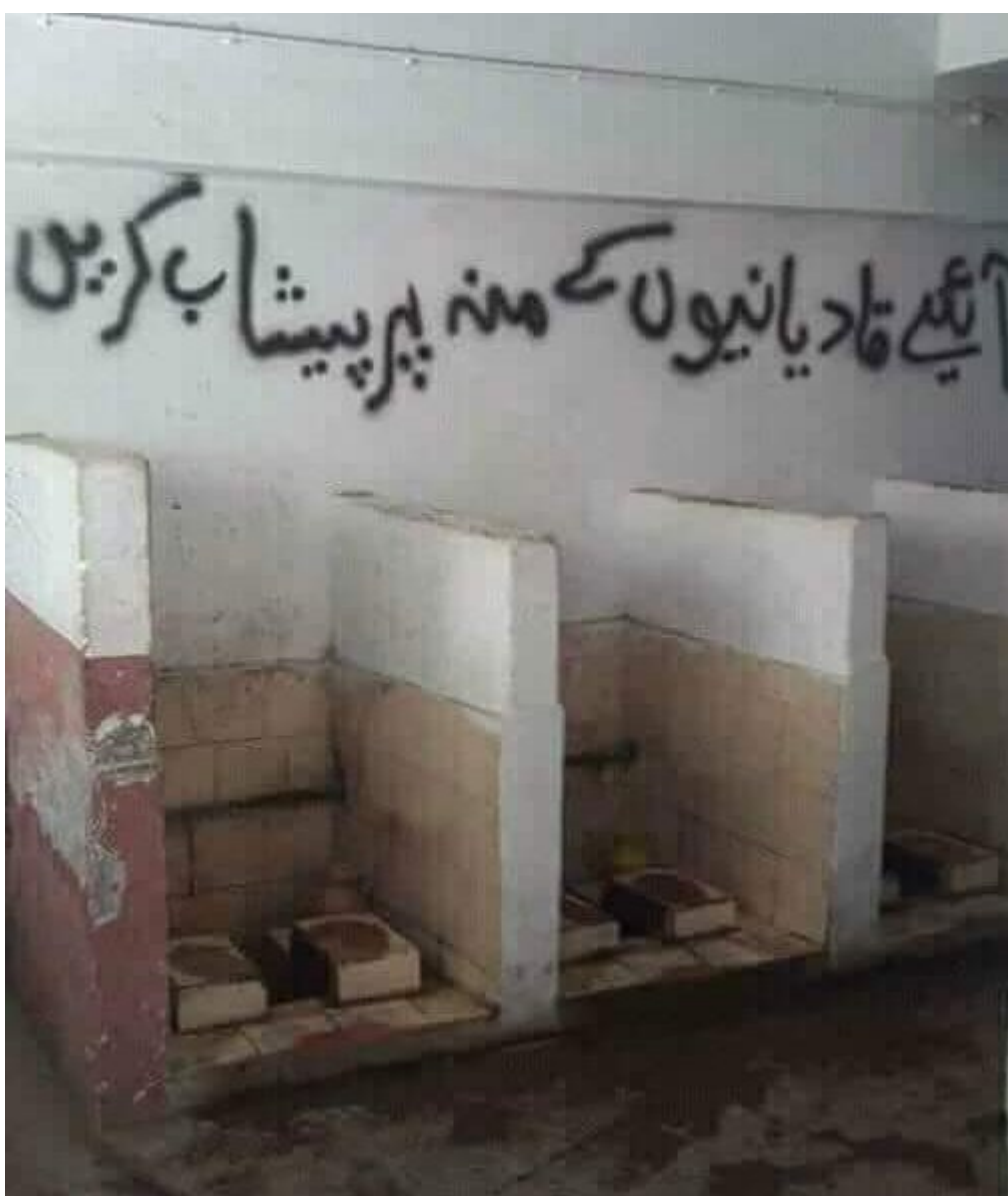 آئیے قادیانیوں کے منہ پر پیشاب کریں